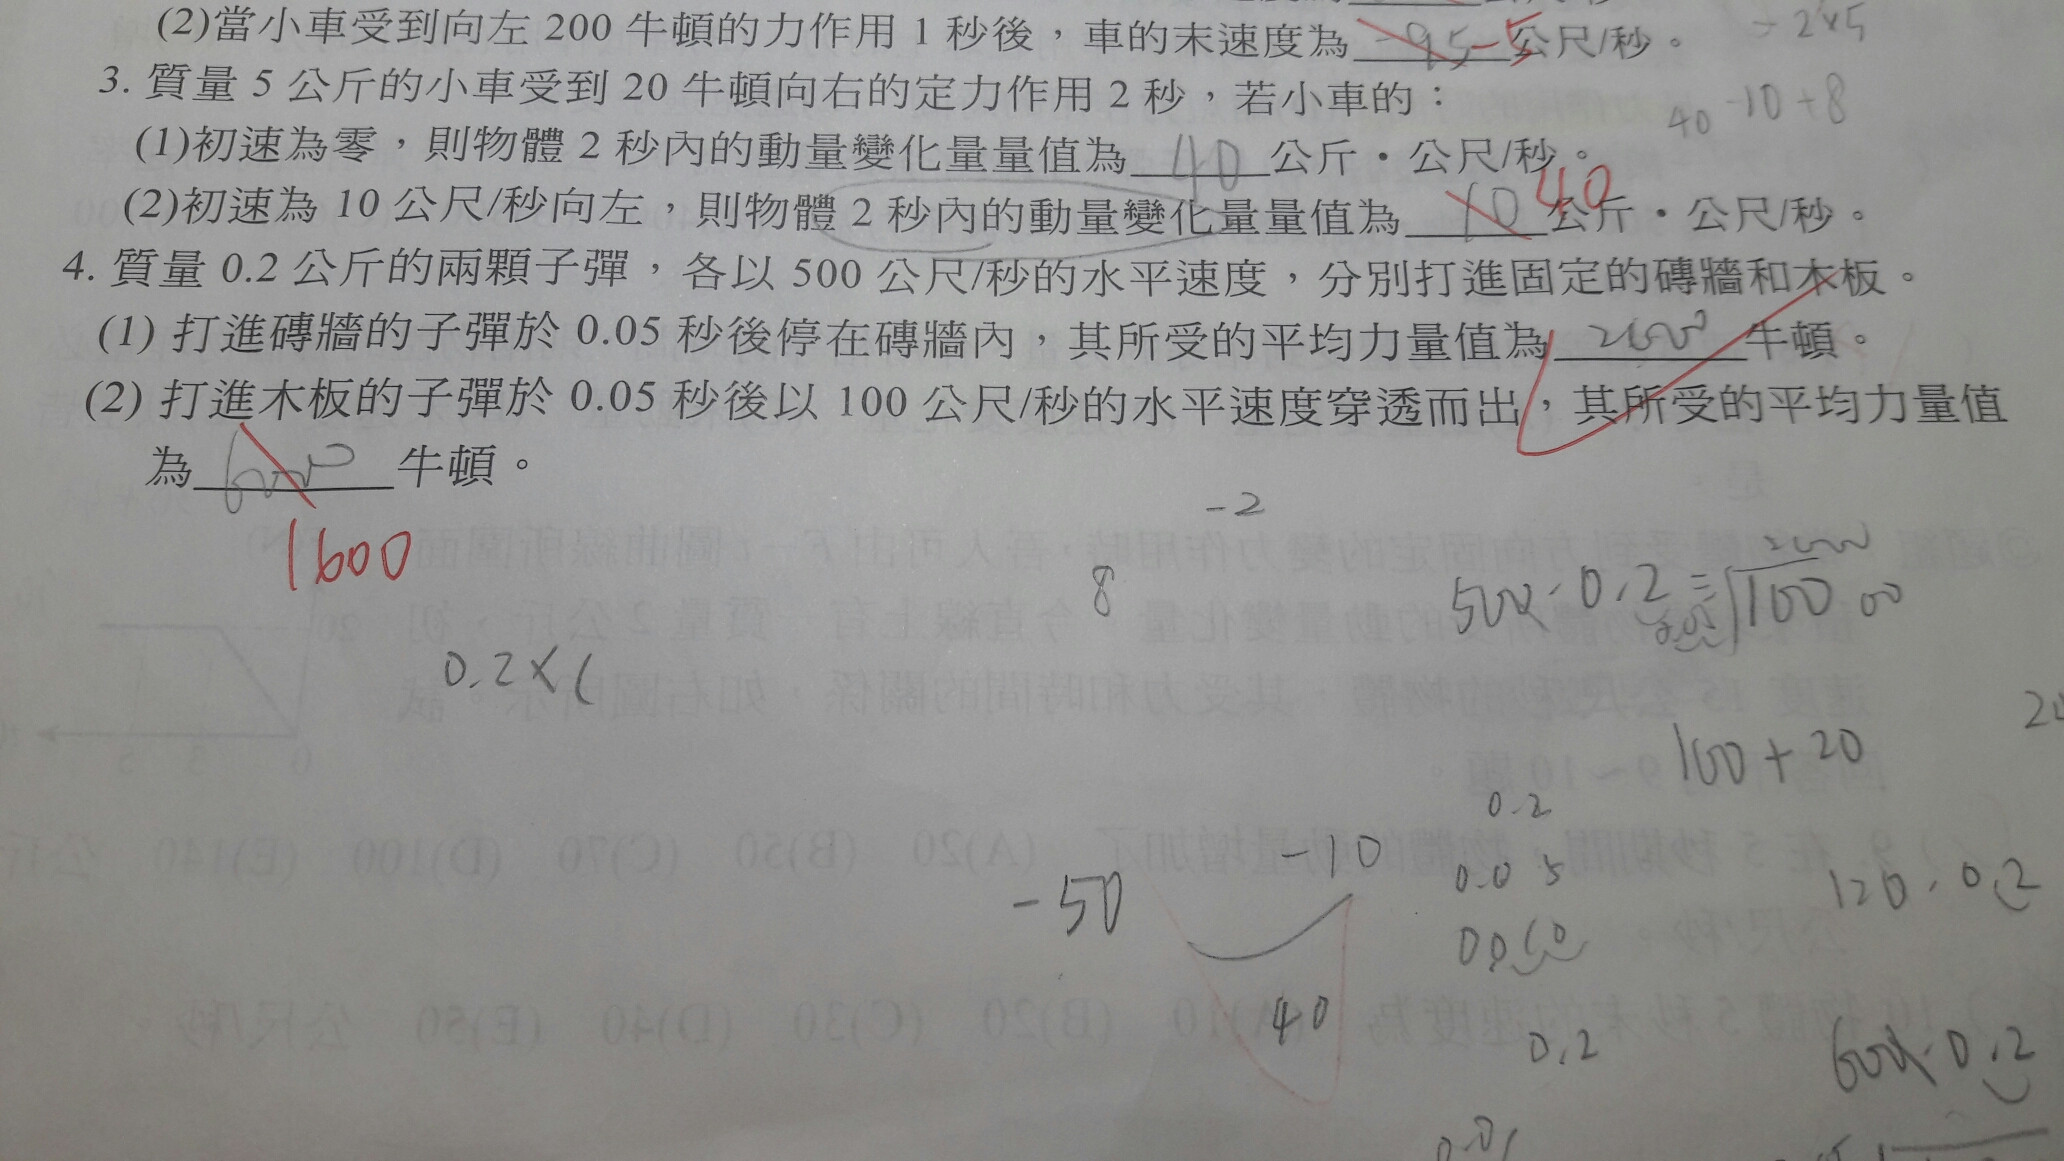 (2)當小車受到向左 200 牛頓的力作用 1 秒後，車的末速度為 -95 -5 公尺/秒。
-2×5
3. 質量 5 公斤的小車受到 20 牛頓向右的定力作用 2 秒，若小車的：
40 -10+8
(1)初速為零，則物體 2 秒內的動量變化量量值為 40 公斤・公尺/秒。
(2)初速為 10 公尺/秒向左，則物體 2 秒內的動量變化量量值為 10 40 公斤・公尺/秒。
4. 質量 0.2 公斤的兩顆子彈，各以 500 公尺/秒的水平速度，分別打進固定的磚牆和木板。
(1) 打進磚牆的子彈於 0.05 秒後停在磚牆內，其所受的平均力量值為 2000 牛頓。
(2) 打進木板的子彈於 0.05 秒後以 100 公尺/秒的水平速度穿透而出，其所受的平均力量值
為 牛頓。
1600
-2
8
2000
500×0.2=
0.05 100 00
0.2×(
100+20
0.2
-10
-50
0.05
120.0.2
40
0.2
600×0.2